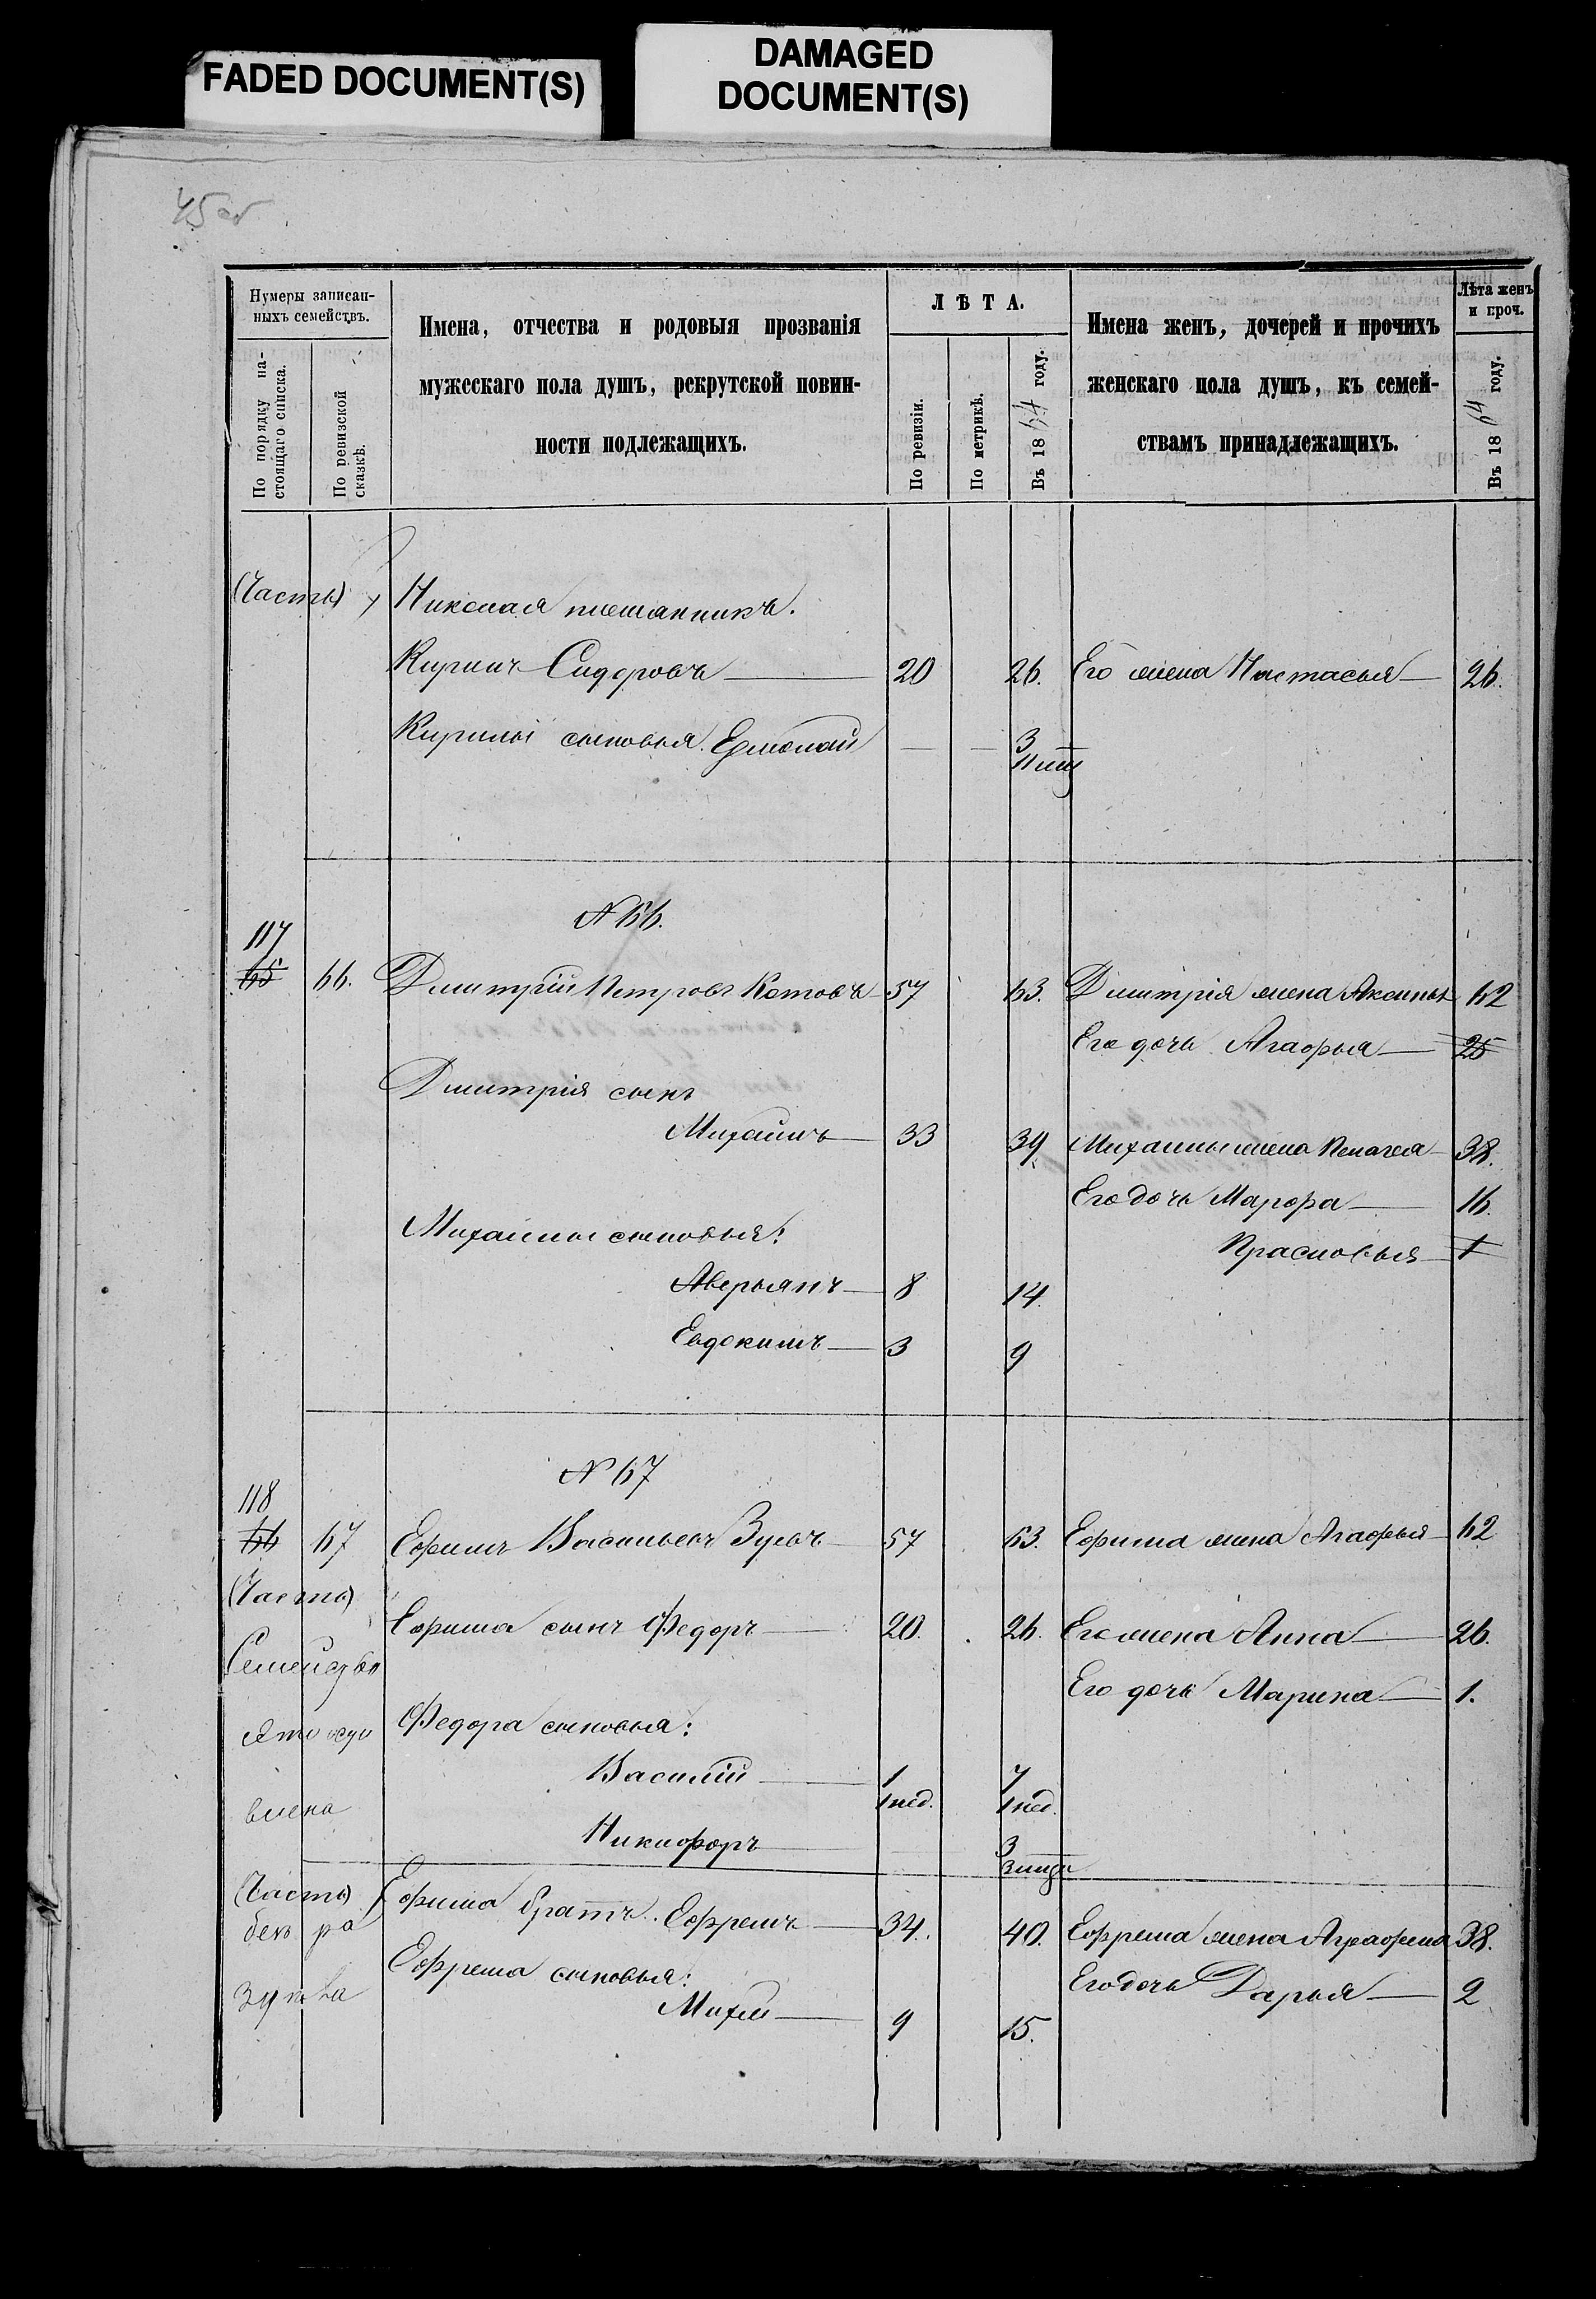 FADED DOCUMENT(S)
DAMAGED
DOCUMENT(S)
45 об
Нумеры записан-
ныхъ семействъ.
По порядку на-
стоящаго списка.
По ревизской
сказкѣ.
Имена, отчества и родовыя прозванія
мужескаго пола душъ, рекрутской повин-
ности подлежащихъ.
ЛѢТА.
По ревизіи.
По метрикѣ.
Въ 1864 году.
Имена женъ, дочерей и прочихъ
женскаго пола душъ, къ семей-
ствамъ принадлежащихъ.
Лѣта женъ
и проч.
Въ 1864 году.
(Часть) Николая племянникъ.
Кирилъ Сидоровъ 20 26. Его жена Настасья 26.
Кирилы сыновья. Ермолай — — 3
N 66.
117
65 66. Дмитрій Петровъ Котовъ 57 63. Дмитрія жена Аксинья 62
Его дочь Агафья 25
Дмитрія сынъ
Михаилъ 33 39 Михаилы жена Пелагея 38.
Его дочь Марфа 16.
Михаилы сыновья: Прасковья 1
Аверьянъ 8 14.
Евдокимъ 3 9
N 67
118
66 67 Ефимъ Васильевъ Зуевъ 57 63. Ефима жена Агафья 62
(Часть)
Ефима сынъ Федоръ 20. 26. Его жена Анна 26.
Семейства
Его дочь Марина 1.
Федора сыновья:
Василій 1 7
1 нед. 1 нед.
Никифоръ 3
(Часть) Ефима братъ. Ефремъ 34. 40. Ефрема жена Аграфена 38.
без ра
Ефрема сыновья: Его дочь Дарья 2
Михей 9 15.